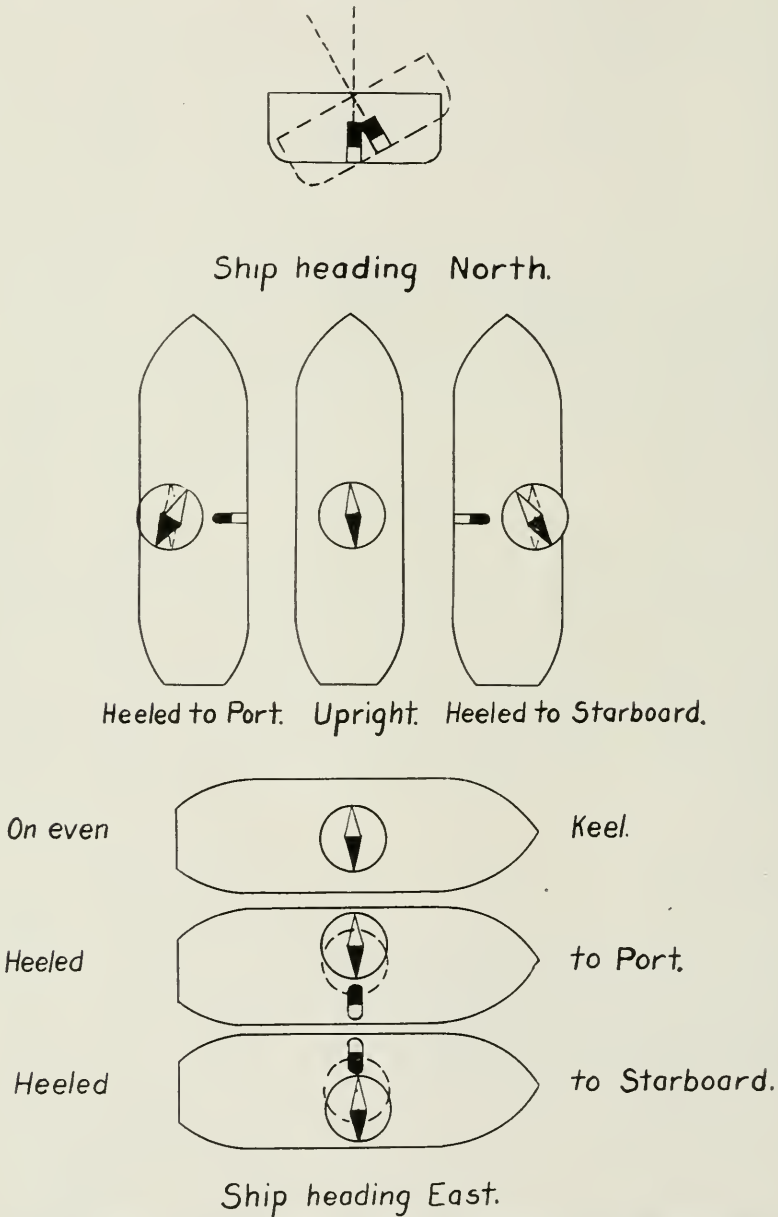 Ship heading North.
Heeled to Port. Upright. Heeled to Starboard.
On even Keel.
Heeled to Port.
Heeled to Starboard.
Ship heading East.